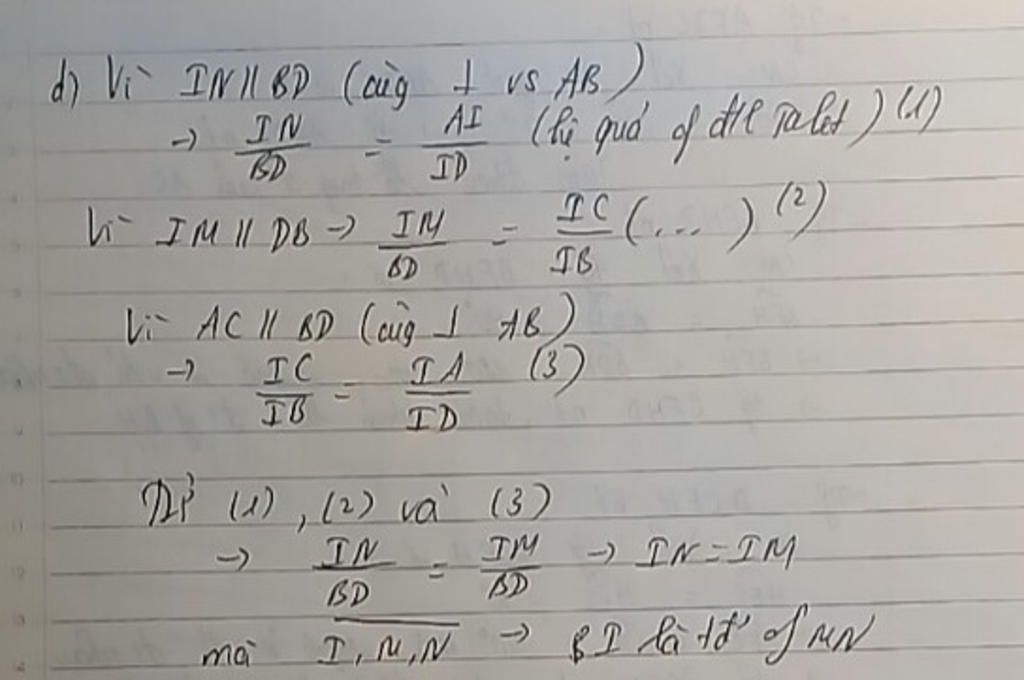 d) Vì IN // BD (cùg ⊥ vs AB)
→ IN/BD = AI/ID (hệ quả of đlí Talet) (1)
Vì IM // DB → IM/BD = IC/IB (...) (2)
Vì AC // BD (cùg ⊥ AB)
→ IC/IB = IA/ID (3)
Từ (1), (2) và (3)
→ IN/BD = IM/BD → IN = IM
mà I, M, N → I là tđ' of MN